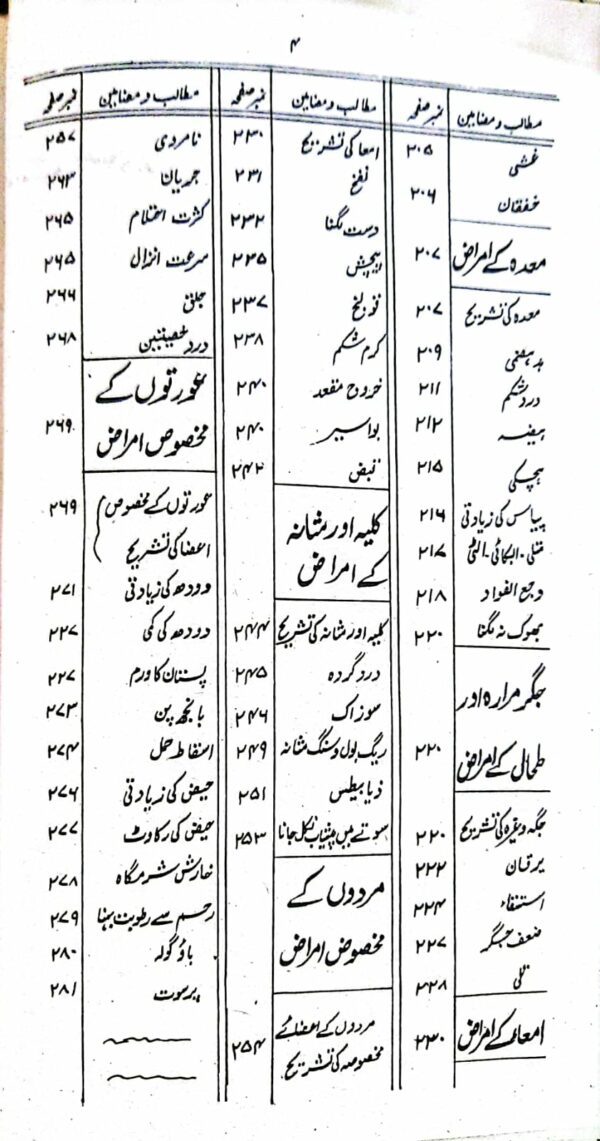 ۴
مطالب و مضامین نمبر صفحہ
غشی ۲۰۵
خفقان ۲۰۶
معدہ کے امراض ۲۰۷
معدہ کی تشریح ۲۰۷
بدہضمی ۲۰۹
درد شکم ۲۱۱
ہیضہ ۲۱۲
ہچکی ۲۱۵
پیاس کی زیادتی ۲۱۶
متلی ۔ ابکائی ۔ الٹی ۲۱۷
وجع الفواد ۲۱۸
بھوک نہ لگنا ۲۲۰
جگر مرارہ اور
طحال کے امراض ۲۲۰
جگہ وغیرہ کی تشریح ۲۲۰
یرقان ۲۲۲
استسقاء ۲۲۴
ضعف جگر ۲۲۷
تلی ۲۲۸
امعاء کے امراض ۲۳۰
مطالب و مضامین نمبر صفحہ
امعا کی تشریح ۲۳۰
نفخ ۲۳۱
دست لگنا ۲۳۲
پیچش ۲۳۵
قولنج ۲۳۷
کرم شکم ۲۳۸
خروج مقعد ۲۴۰
بواسیر ۲۴۰
قبض ۲۴۲
کلیہ اور مثانہ
کے امراض
کلیہ اور مثانہ کی تشریح ۲۴۴
درد گردہ ۲۴۵
سوزاک ۲۴۶
ریگ بول و سنگ مثانہ ۲۴۹
ذیابیطس ۲۵۱
سوتے میں پیشاب نکل جانا ۲۵۳
مردوں کے
مخصوص امراض
مردوں کے اعضائے
مخصوصہ کی تشریح ۲۵۴
مطالب و مضامین نمبر صفحہ
نامردی ۲۵۷
جریان ۲۶۳
کثرت احتلام ۲۶۵
سرعت انزال ۲۶۵
جلق ۲۶۶
درد خصیتین ۲۶۸
عورتوں کے
مخصوص امراض ۲۶۹
عورتوں کے مخصوص ۲۶۹
اعضا کی تشریح
دودھ کی زیادتی ۲۷۱
دودھ کی کمی ۲۲۷
پستان کا ورم ۲۲۷
بانجھ پن ۲۷۳
اسقاط حمل ۲۷۴
حیض کی زیادتی ۲۷۶
حیض کی رکاوٹ ۲۷۷
خارش شرمگاہ ۲۷۸
رحم سے رطوبت بہنا ۲۷۹
باؤ گولہ ۲۸۰
پرسوت ۲۸۱